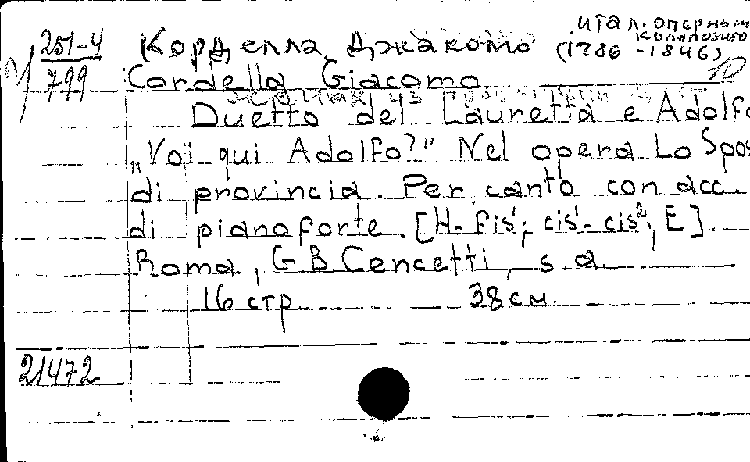 итал. оперный
251-4 Корделла Джакомо (1786-1846)
799 Cordella Giacomo
Duetto del Lauretta e Adolfo
„Voi qui Adolfo?" Nel opera Lo Spos
di provincia. Per canto con acc.
di pianoforte. [H-fis¹; cis¹-cis², E].
Roma, G B Cencetti, s. a.
16 стр. 38 см
21472